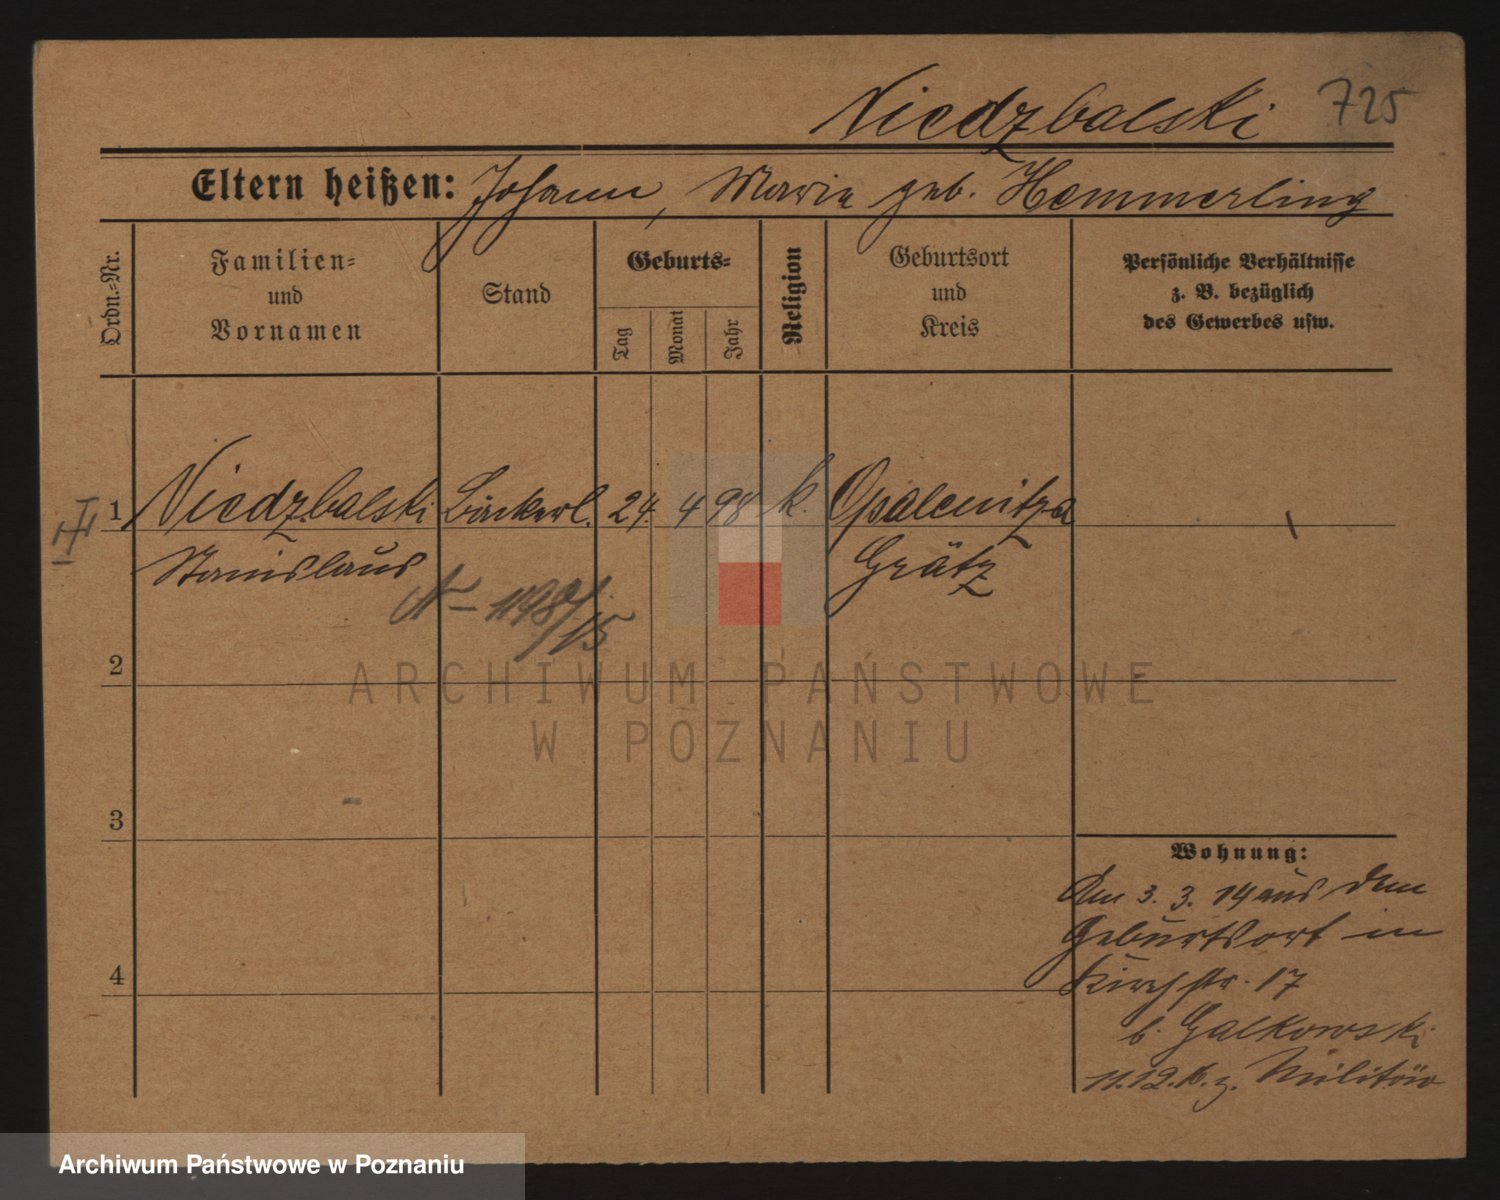 Niedzbalski 725
Eltern heißen: Johann, Marie geb. Hemmerling
Ordn.-Nr.
Familien-
und
Vornamen
Stand
Geburts-
Tag
Monat
Jahr
Religion
Geburtsort
und
Kreis
Persönliche Verhältnisse
z. B. bezüglich
des Gewerbes usw.
1 Niedzbalski Bäckerl. 24. 4 98 k. Opalenitza
Stanislaus Grätz
N – 1198/15
2
ARCHIWUM PAŃSTWOWE
W POZNANIU
3
Wohnung:
Am 3. 3. 14 aus dem
Geburtsort in
Kirchstr. 17
b. Galkowski
11.12. z. Militär
4
Archiwum Państwowe w Poznaniu